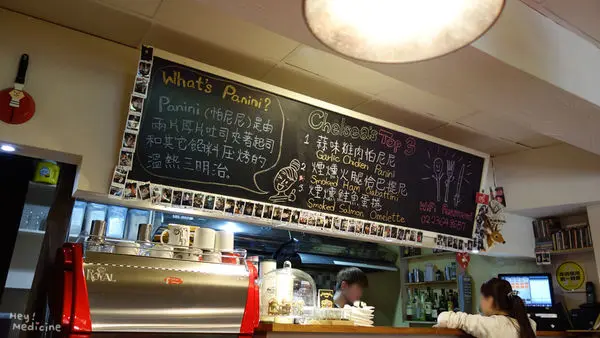 What's Panini?
Panini (帕尼尼)是由
兩片厚片吐司夾著起司
和其它餡料壓烤的
溫熱三明治。
Chelsea's Top 3
1. 蒜味雞肉帕尼尼
Garlic Chicken Panini
2. 煙燻火腿帕尼尼
Smoked Ham
3. 煙燻鮭魚蛋捲
Smoked Salmon Omelette
WiFi Password
ROYAL
HEY!
MEDICINE